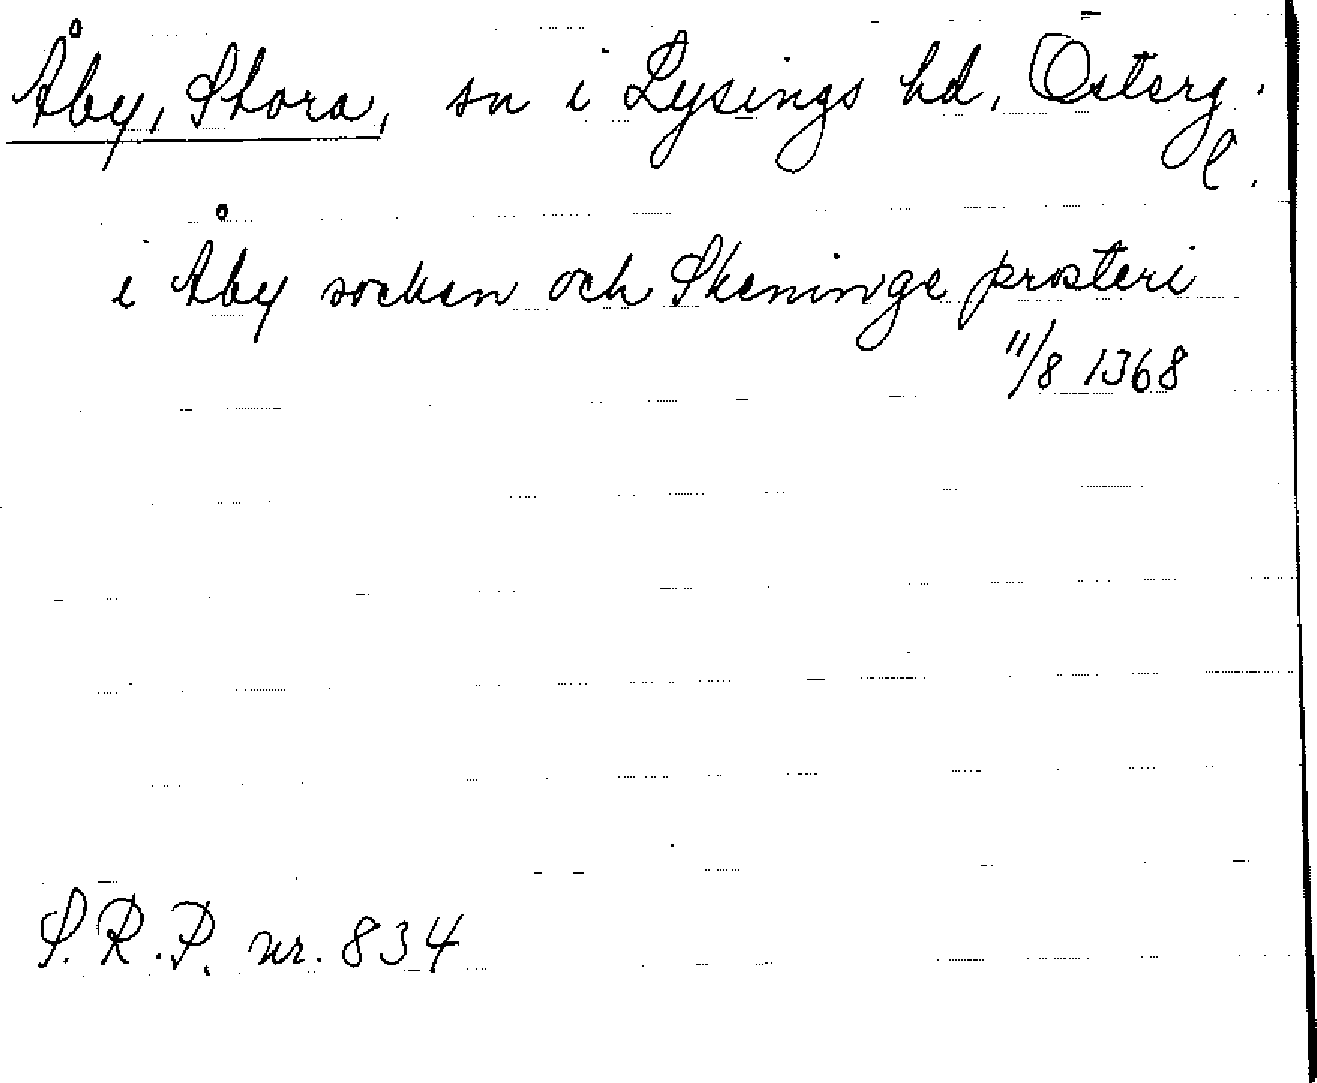 Åby, Stora, sn i Lysings hd, Österg.
l.
i Åby socken och Skeninge prosteri
11/8 1368
S.R.P. nr. 834